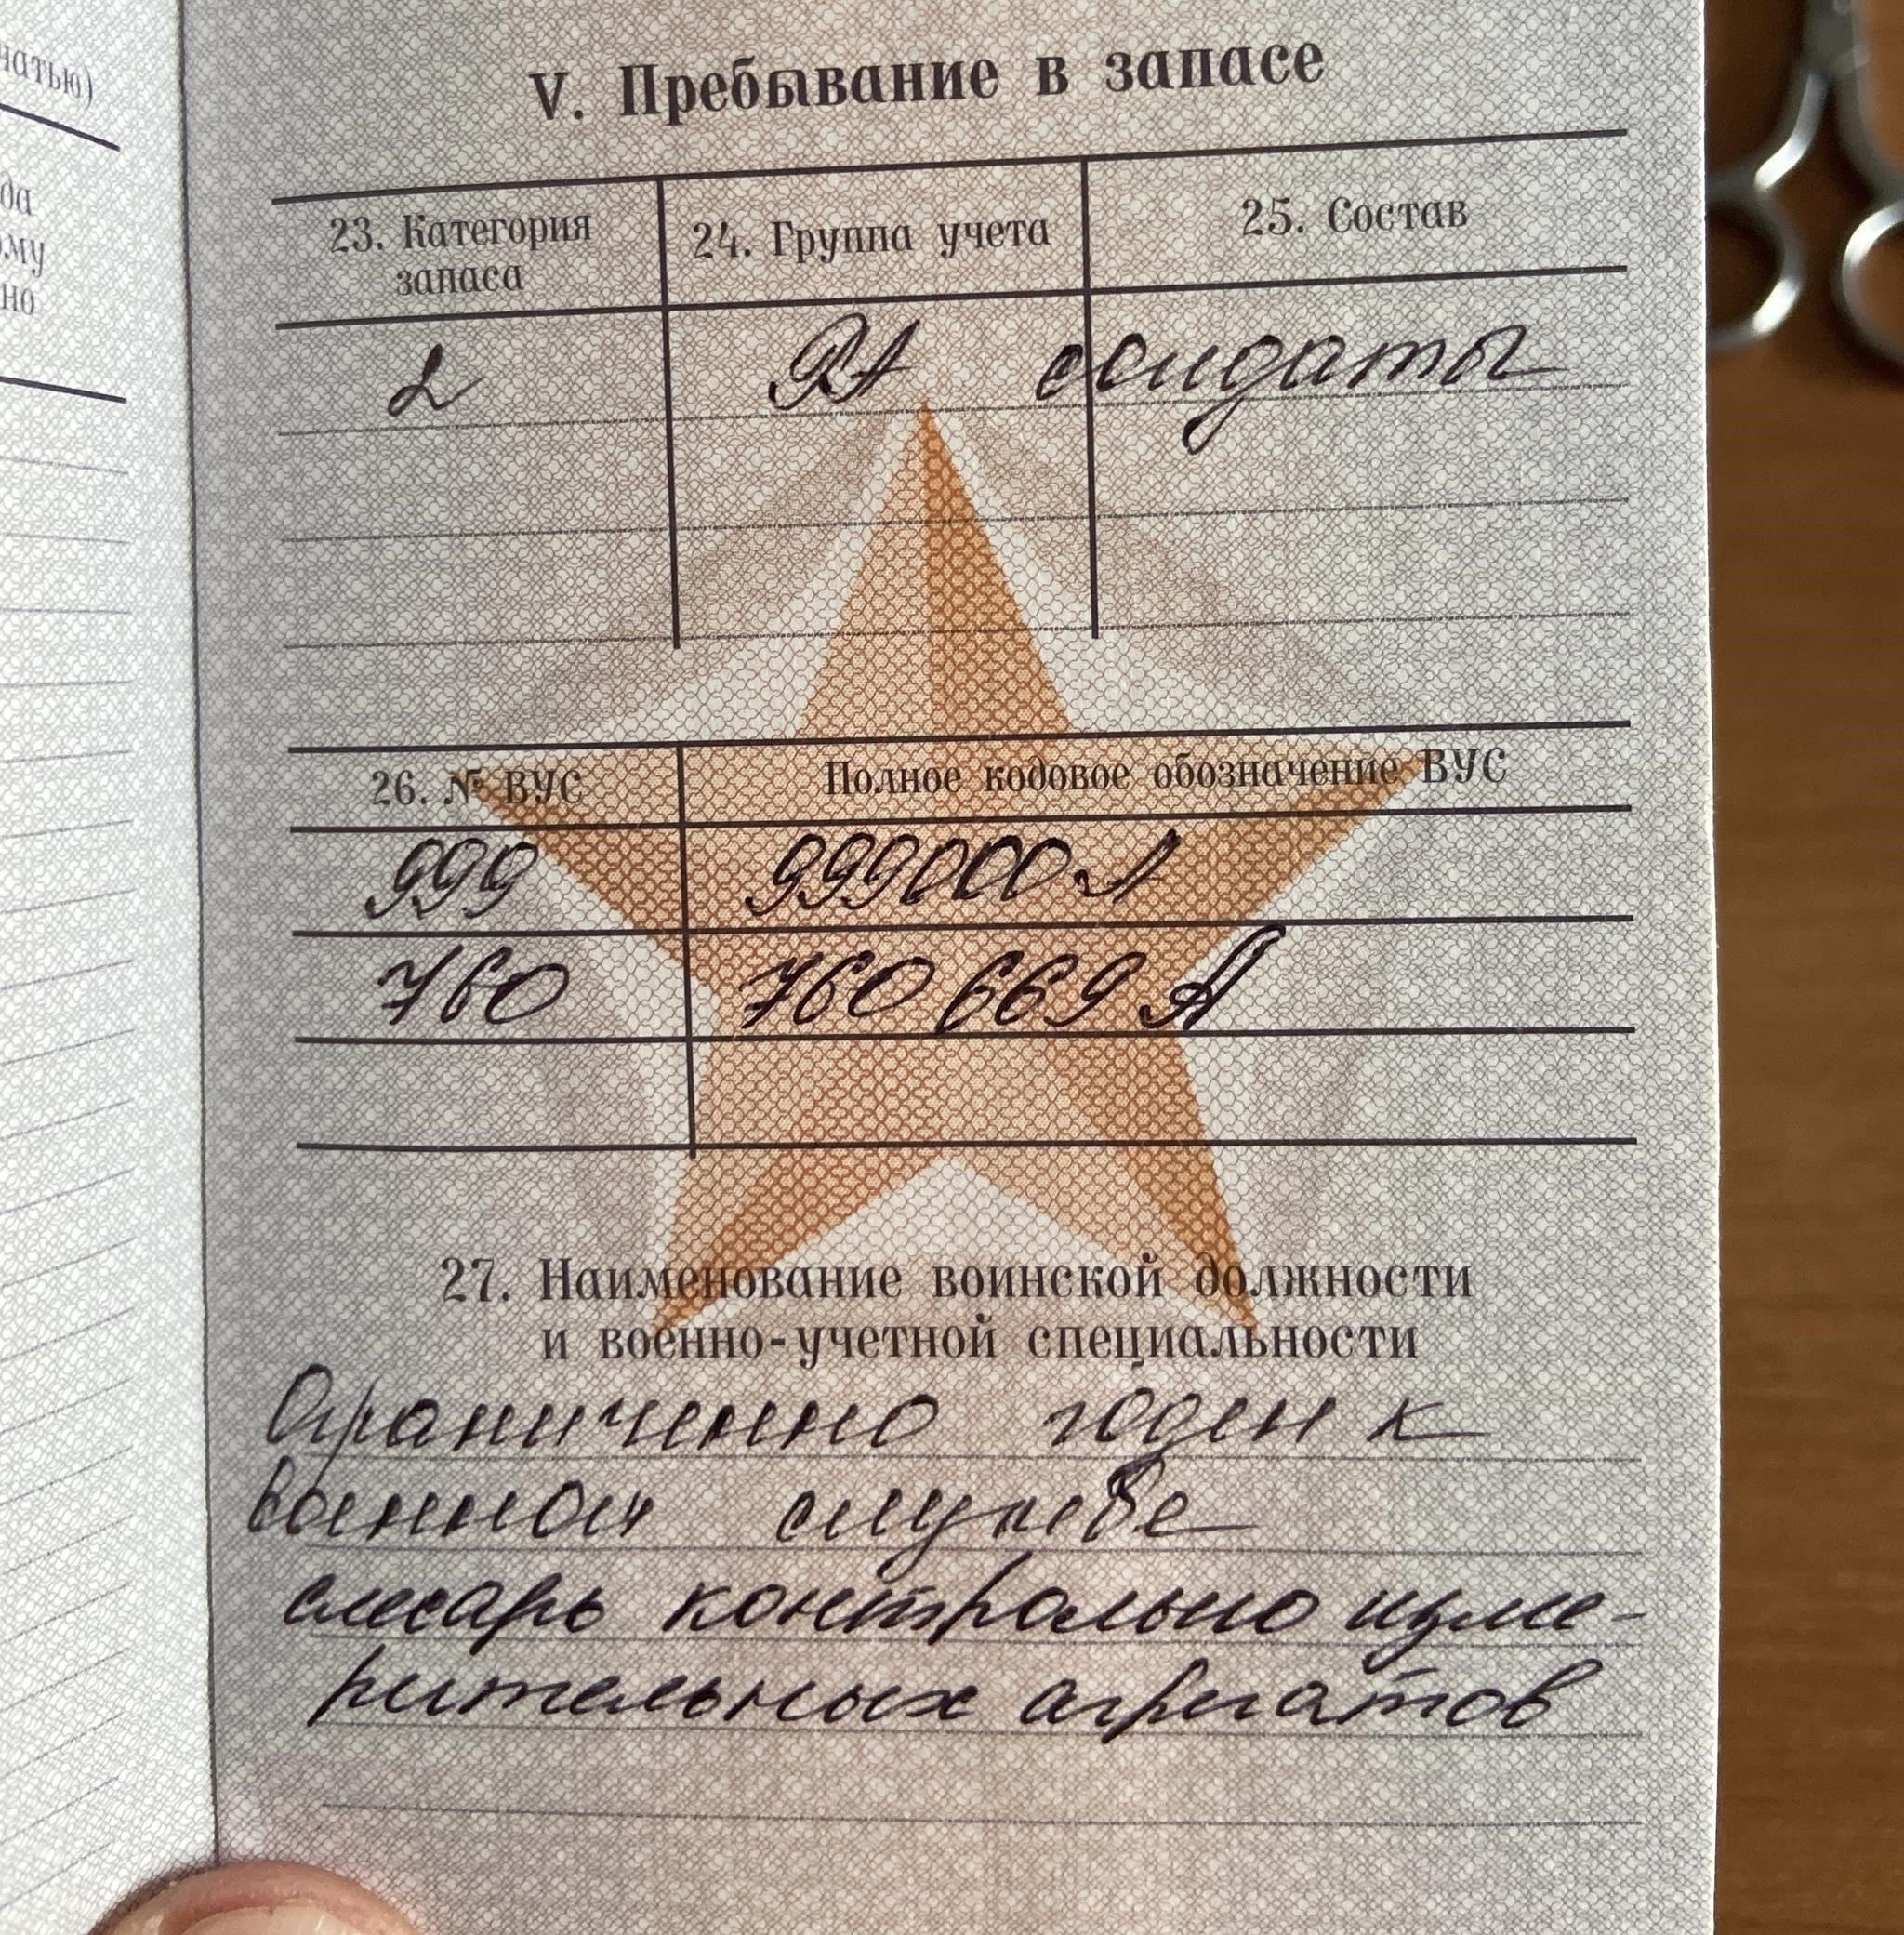 чатью)
да
ому
но
V. Пребывание в запасе
23. Категория
запаса
24. Группа учета
25. Состав
2
РА
солдаты
26. № ВУС
Полное кодовое обозначение ВУС
999
999000А
760
760669А
27. Наименование воинской должности
и военно-учетной специальности
Ограниченно годен к
военной службе
слесарь контрольно изме-
рительных агрегатов